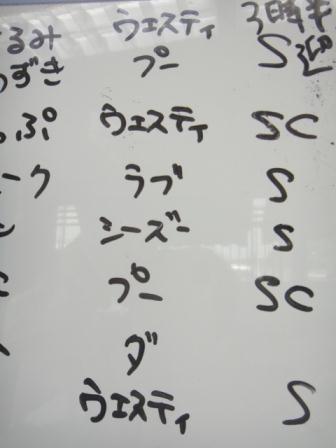 るみ ウェスティ 3時半
ずき プー S 3迎
ぷ ウェスティ SC
ーク ラブ S
シーズー S
プー SC
ダ
ウェスティ S